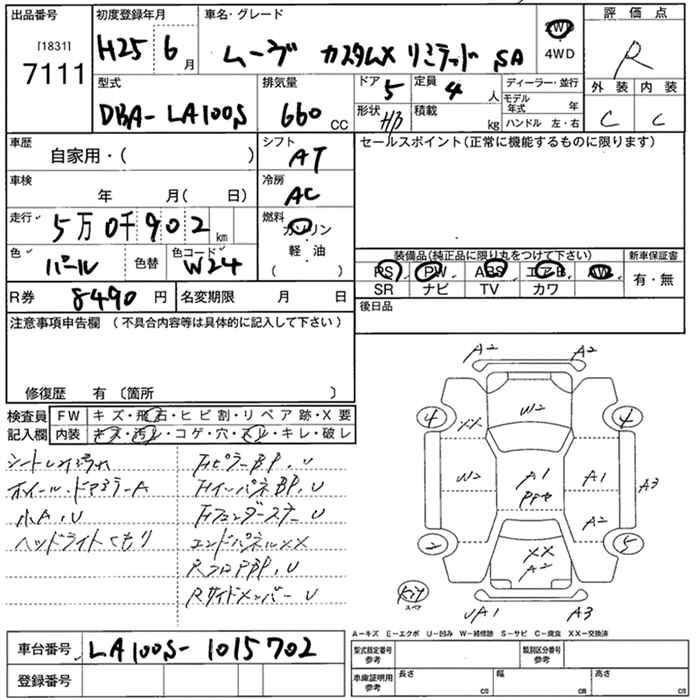 出品番号
[1831]
7111
初度登録年月
H25 6月
車名・グレード
ムーヴ カスタムX リミテッド SA
2WD
4WD
評価点
R
外装 内装
C C
型式
DBA-LA100S
排気量
660 CC
ドア 5
定員 4 人
形状 HB
積載 kg
ディーラー・並行
モデル年式 年
ハンドル 左・右
車歴
自家用・( )
シフト
AT
セールスポイント(正常に機能するものに限ります)
車検
年 月( 日)
冷房
AC
走行
5万0千902km
燃料
ガソリン
軽・油
( )
色
パール
色替
色コード
W24
装備品(純正品に限り丸をつけて下さい)
新車保証書
PS PW ABS エアB AW
有・無
SR ナビ TV カワ
R券 8490円
名変期限 月 日
後日品
注意事項申告欄(不具合内容等は具体的に記入して下さい)
修復歴 有〔箇所 〕
検査員
記入欄
FW キズ・飛石・ヒビ割・リペア跡・X要
内装 キズ・汚レ・コゲ・穴・スレ・キレ・破レ
ホイール・ドアミラーA
小A、U
ヘッドライトくもり
FピラーBP、U
FインパネBP、U
エンドパネルXX
RフロアBP、U
Rサイドメンバー U
A2 A2
4 W2 4
XX
W2 A1 A1 A3
A2
2 XX 5
A2
スペア
UA1 A3
A-キズ E-エクボ U-凹み W-補修跡 S-サビ C-腐食 XX-交換済
車台番号 LA100S-1015702
登録番号
型式指定番号
参考
類別区分番号
参考
車庫証明用
参考
長さ cm
幅 cm
高さ cm